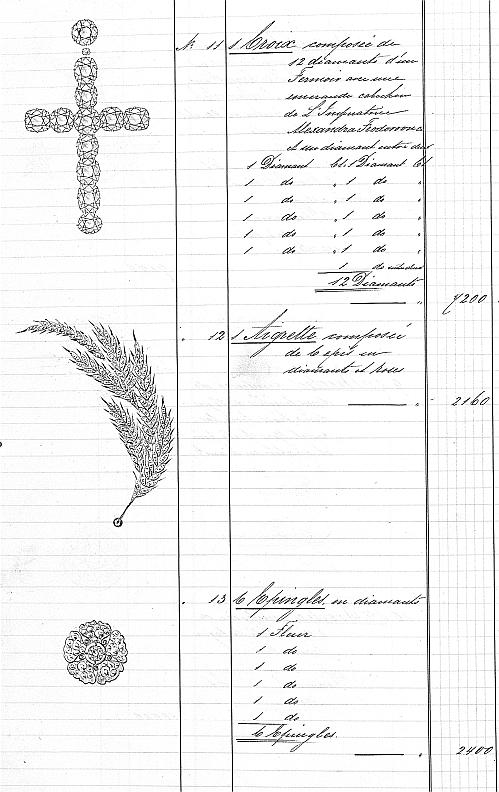 N. 11 1 Croix composée de
12 diamants d'un
Fermoir avec une
emeraude cabochon
de L'Impératrice
Alexandra Feodorovna
et un diamant entre deux
1 Diamant Ct. 1 Diamant Ct
1 do " 1 do "
1 do " 1 do "
1 do " 1 do "
1 do " 1 do "
1 do " 1 do "
1 do entre deux
12 Diamants
" 7200
" 12 1 Aigrette composée
de 6 epis en
diamants et roses
" 2160
" 13 6 Epingles en diamants
1 Fleur
1 do
1 do
1 do
1 do
1 do
6 Epingles.
" 2400